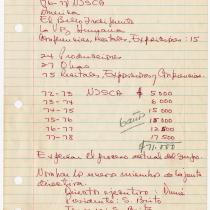 76-78 NJSCA
America
El Diario Independiente
La Voz Hispana
Conferencias, Recitales, Exposiciones: 15
24 Producciones
27 Obras
75 Recitales, Exposiciones, Conferencias
72-73 NJSCA $ 5000
73-74 6000
74-75 15000
75-76 6 años 15000
76-77 12500
77-78 17.500
$71.000
Explicar el proceso actual del grupo.
Nombrar los nuevos miembros de la junta
directiva.
Director ejecutivo:
Presidente: S. Brito